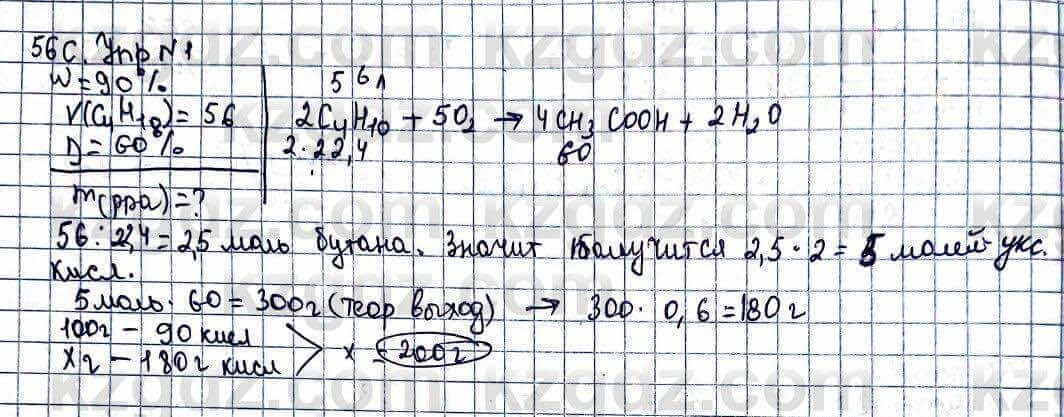 56 С. Упр N1
W = 90%
V(C4H10) = 56
η = 60%
m(р-ра) = ?
56 л
2C4H10 + 5O2 → 4CH3COOH + 2H2O
2·22,4 60
56 : 22,4 = 2,5 моль бутана. Значит получится 2,5 · 2 = 5 молей укс.
кисл.
5 моль · 60 = 300 г (теор выход) → 300 · 0,6 = 180 г
100 г – 90 кисл
x г – 180 г кисл
x = 200 г
kzgdz.com